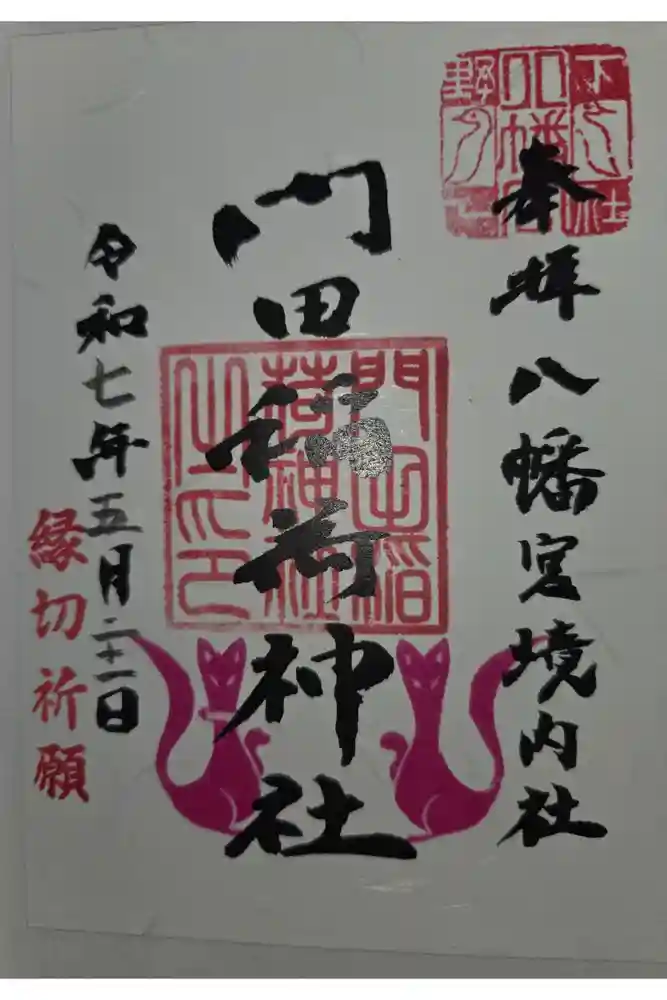 奉拝 八幡宮境内社
門田稲荷神社
令和七年五月二十一日
縁切祈願
下野一社八幡宮
門田稲荷神社之印